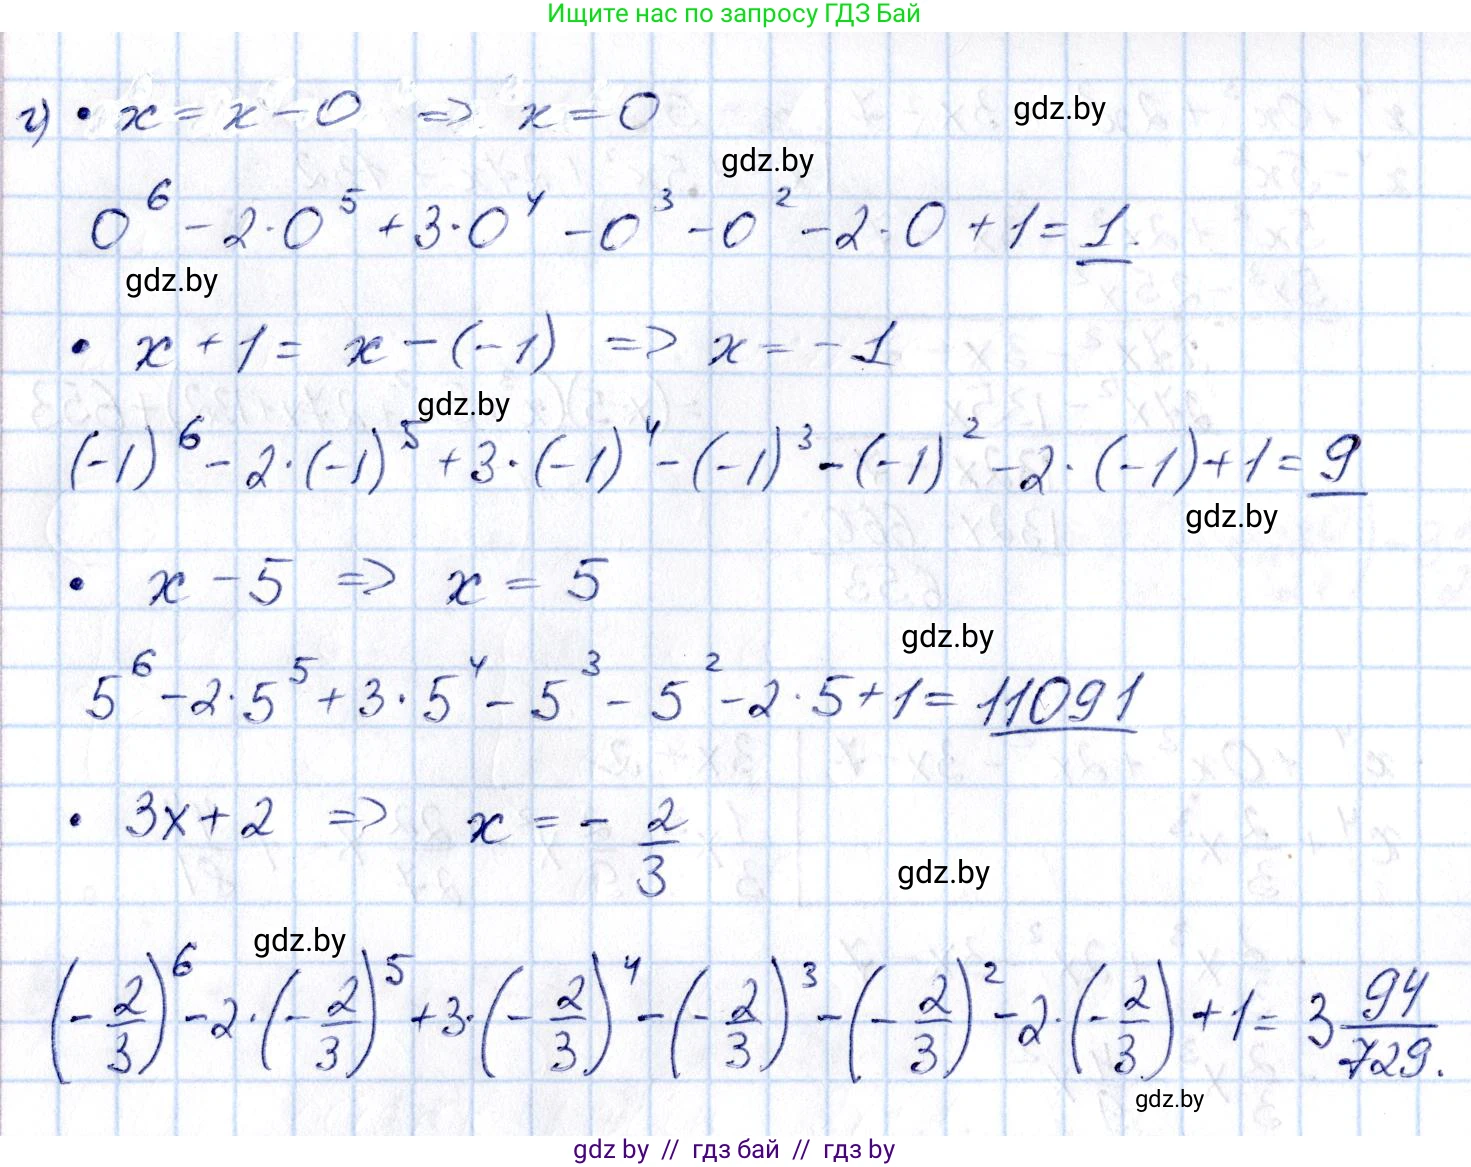 Ищите нас по запросу ГДЗ Бай
г) • x = x - 0 => x = 0
gdz.by
gdz.by
0⁶ - 2·0⁵ + 3·0⁴ - 0³ - 0² - 2·0 + 1 = 1.
gdz.by
• x + 1 = x - (-1) => x = -1
gdz.by
(-1)⁶ - 2·(-1)⁵ + 3·(-1)⁴ - (-1)³ - (-1)² - 2·(-1) + 1 = 9
gdz.by
• x - 5 => x = 5
gdz.by
5⁶ - 2·5⁵ + 3·5⁴ - 5³ - 5² - 2·5 + 1 = 11091
• 3x + 2 => x = - 2/3
gdz.by
gdz.by
(-2/3)⁶ - 2·(-2/3)⁵ + 3·(-2/3)⁴ - (-2/3)³ - (-2/3)² - 2·(-2/3) + 1 = 3 94/729.
gdz.by
gdz by // гдз бай // гдз by